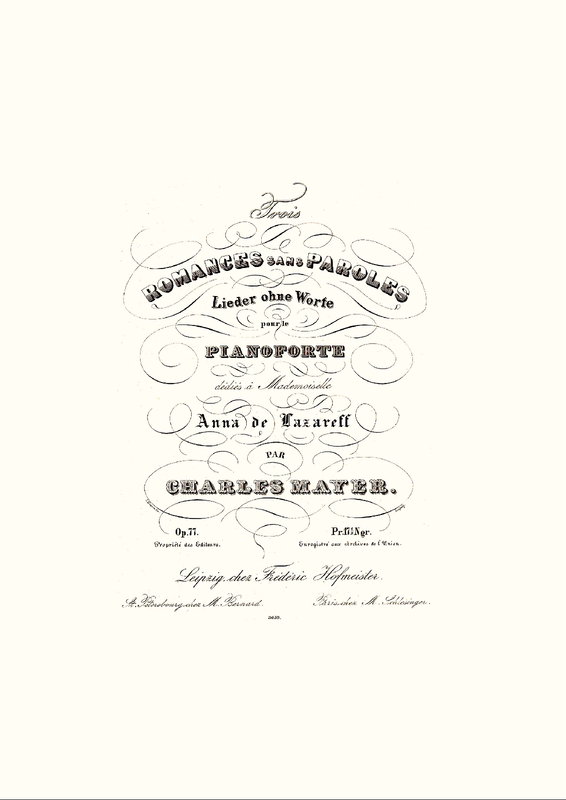 Trois
ROMANCES SANS PAROLES
Lieder ohne Worte
pour le
PIANOFORTE
dédiés à Mademoiselle
Anna de Lazareff
PAR
CHARLES MAYER.
Op.77. Pr. Ngr.
Propriété des Editeurs. Enregistré aux archives de l'Union.
Leipzig, chez Frédéric Hofmeister.
St. Pétersbourg, chez M. Bernard. Paris, chez M. Schlesinger.